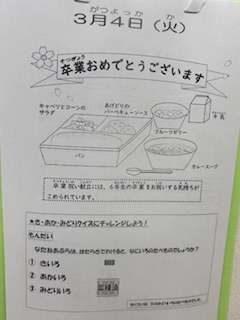 がつよっか　か
3月4日（火）
そつぎょう
卒業おめでとうございます
キャベツとコーンの
サラダ
あげどりの
バーベキューソース
牛乳
フルーツゼリー
パン
カレースープ
卒業祝い献立には、6年生の卒業をお祝いする気持ちが
こめられています。
★き・あか・みどりクイズにチャレンジしよう！
もんだい
なたねあぶらは、はたらきでわけると、なにいろのたべものでしょうか？
① きいろ
② あかいろ
③ みどりいろ